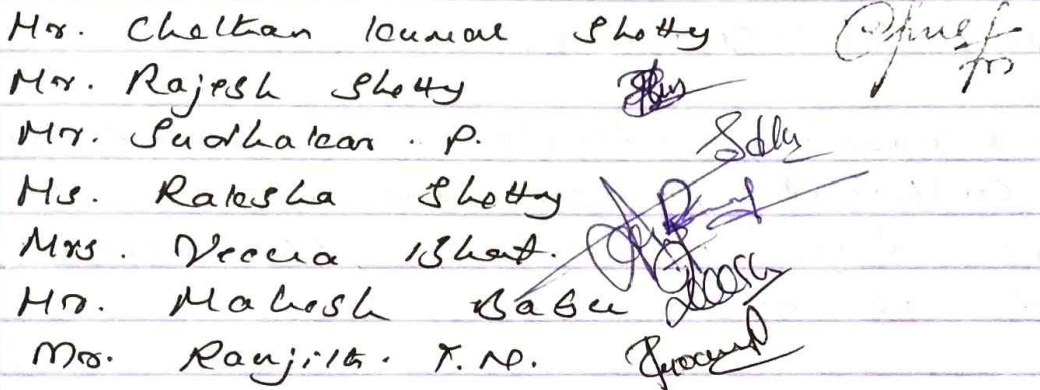 Mr. Chethan kumar Shetty
Mr. Rajesh Shetty
Mr. Sudhakar . P.
Ms. Rakesha Shetty
Mrs. Veena Bhat.
Mr. Mahesh Babu
Mr. Ranjith. T.N.